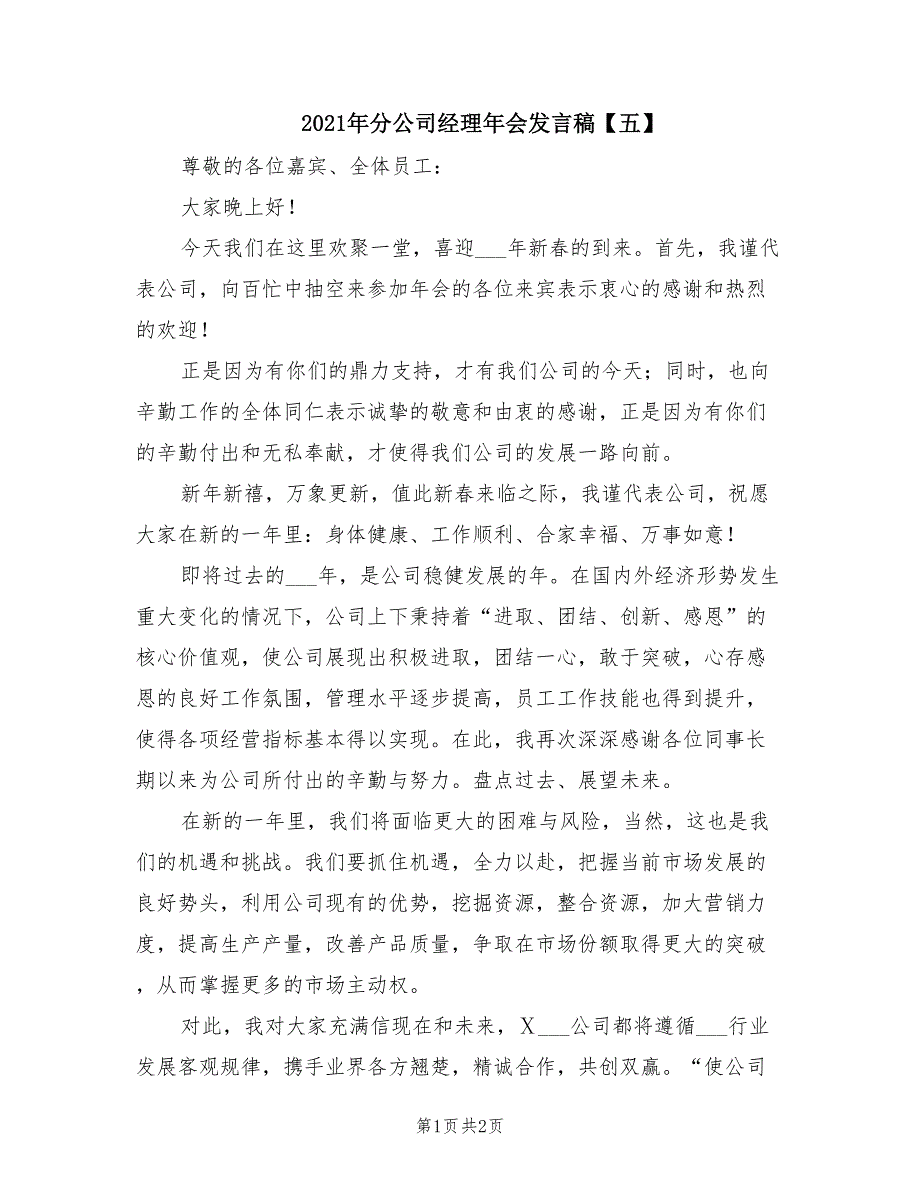 2021年分公司经理年会发言稿【五】
尊敬的各位嘉宾、全体员工：
大家晚上好！
今天我们在这里欢聚一堂，喜迎___年新春的到来。首先，我谨代
表公司，向百忙中抽空来参加年会的各位来宾表示衷心的感谢和热烈
的欢迎！
正是因为有你们的鼎力支持，才有我们公司的今天；同时，也向
辛勤工作的全体同仁表示诚挚的敬意和由衷的感谢，正是因为有你们
的辛勤付出和无私奉献，才使得我们公司的发展一路向前。
新年新禧，万象更新，值此新春来临之际，我谨代表公司，祝愿
大家在新的一年里：身体健康、工作顺利、合家幸福、万事如意！
即将过去的___年，是公司稳健发展的年。在国内外经济形势发生
重大变化的情况下，公司上下秉持着“进取、团结、创新、感恩”的
核心价值观，使公司展现出积极进取，团结一心，敢于突破，心存感
恩的良好工作氛围，管理水平逐步提高，员工工作技能也得到提升，
使得各项经营指标基本得以实现。在此，我再次深深感谢各位同事长
期以来为公司所付出的辛勤与努力。盘点过去、展望未来。
在新的一年里，我们将面临更大的困难与风险，当然，这也是我
们的机遇和挑战。我们要抓住机遇，全力以赴，把握当前市场发展的
良好势头，利用公司现有的优势，挖掘资源，整合资源，加大营销力
度，提高生产产量，改善产品质量，争取在市场份额取得更大的突破
，从而掌握更多的市场主动权。
对此，我对大家充满信现在和未来，Ｘ___公司都将遵循___行业
发展客观规律，携手业界各方翘楚，精诚合作，共创双赢。“使公司
第1页共2页